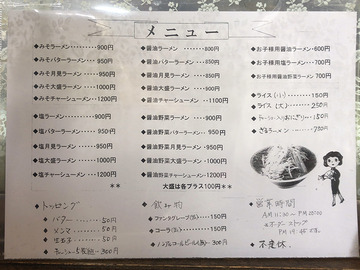 メニュー
◆みそラーメン・・・・・・・・・900円
◆みそバターラーメン・・・・950円
◆みそ月見ラーメン・・・・・950円
◆みそ大盛ラーメン・・・・・1000円
◆みそチャーシューメン・・・・1200円
◆塩ラーメン・・・・・・・・・・900円
◆塩バターラーメン・・・・・950円
◆塩月見ラーメン・・・・・・950円
◆塩大盛ラーメン・・・・・・1000円
◆塩チャーシューメン・・・・1200円
**
◆醤油ラーメン・・・・・・・・800円
◆醤油バターラーメン・・・・850円
◆醤油月見ラーメン・・・・・850円
◆醤油大盛ラーメン・・・・・900円
◆醤油チャーシューメン・・・1100円
◆醤油野菜ラーメン・・・・・・900円
◆醤油野菜バターラーメン・・950円
◆醤油野菜月見ラーメン・・・950円
◆醤油野菜大盛ラーメン・・・1000円
◆醤油野菜チャーシューメン・・1200円
大盛は各プラス100円**
◆お子様用醤油ラーメン・・600円
◆お子様用塩ラーメン・・・700円
◆お子様用醤油野菜ラーメン・・700円
◆ライス(小)・・・・・150円
◆ライス(大)・・・・・250円
◆ざるラーメン・・・・・
◆トッピング
◆バター・・・・50円
◆メンマ・・・・50円
◆生玉子・・・・50円
◆チャーシュー5枚組・・・300円
◆飲み物
◆ファンタグレープ(缶)・・・150円
◆コーラ(缶)・・・・150円
◆ノンアルコールビール(缶)・・300円
◆営業時間
AM 11:00 ~ PM
オーダーストップ
◆不定休.